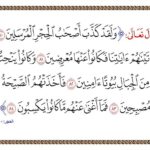 قال تعالى: ﴿وَلَقَدْ كَذَّبَ أَصْحَٰبُ ٱلْحِجْرِ ٱلْمُرْسَلِينَ
وَءَاتَيْنَٰهُمْ ءَايَٰتِنَا فَكَانُوا۟ عَنْهَا مُعْرِضِينَ وَكَانُوا۟ يَنْحِتُونَ
مِنَ ٱلْجِبَالِ بُيُوتًا ءَامِنِينَ فَأَخَذَتْهُمُ ٱلصَّيْحَةُ
مُصْبِحِينَ فَمَآ أَغْنَىٰ عَنْهُم مَّا كَانُوا۟ يَكْسِبُونَ﴾